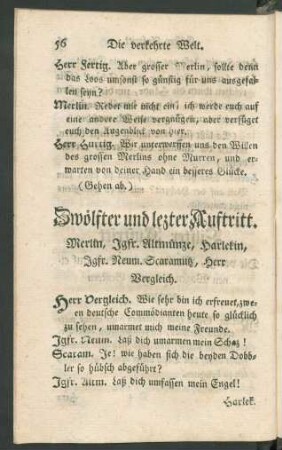 56 Die verkehrte Welt.
Herr Fertig. Aber grosser Merlin, sollte denn
das Loos umsonst so günstig für uns ausgefal-
len seyn?
Merlin. Redet mir nicht ein! ich werde euch auf
eine andere Weise vergnügen, aber verfüget
euch den Augenblick von hier.
Herr Hurtig. Wir unterwerffen uns den Willen
des grossen Merlins ohne Murren, und er-
warten von deiner Hand ein besseres Glücke.
(Gehen ab.)
Zwölfter und lezter Auftritt.
Merlin, Jgfr. Altmünze, Harlekin,
Jgfr. Neum. Scaramutz, Herr
Vergleich.
Herr Vergleich. Wie sehr bin ich erfreuet, zwe-
en deutsche Commödianten heute so glücklich
zu sehen, umarmet mich meine Freunde.
Jgfr. Neum. Laß dich umarmen mein Schaz!
Scaram. Je! wie haben sich die beyden Dobb-
ler so hübsch abgeführt?
Jgfr. Altm. Laß dich umfassen mein Engel!
Harlek.